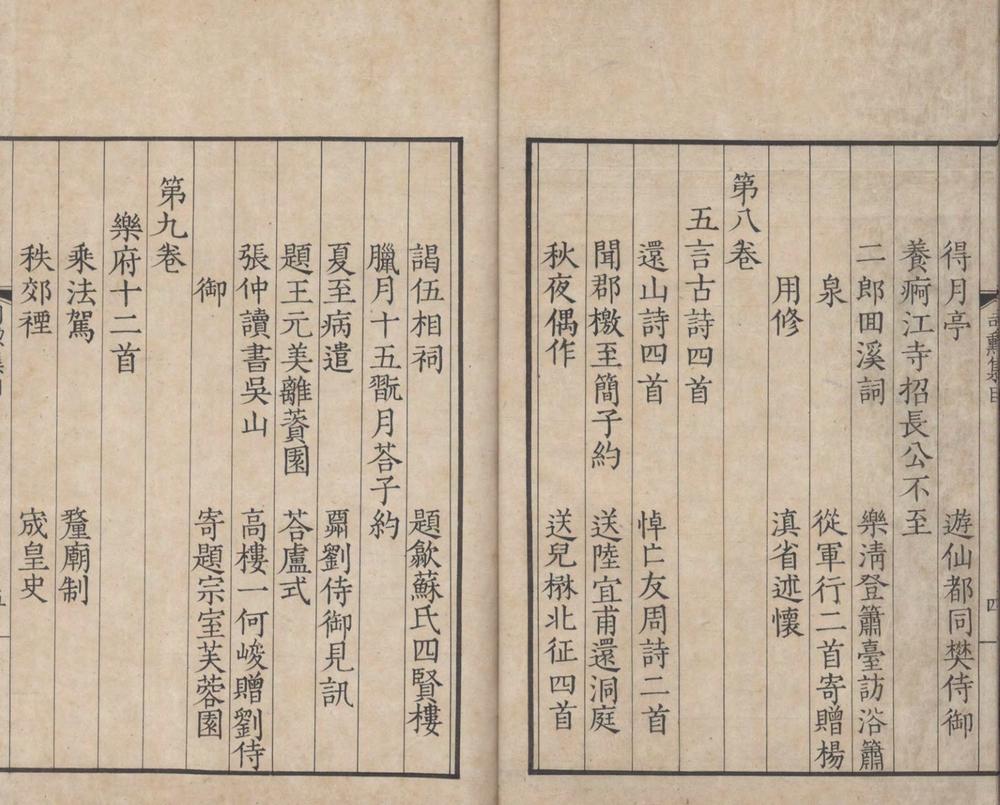 得月亭 遊仙都同樊侍御
養痾江寺招長公不至
二郎田溪詞 樂清登簫臺訪浴簫
泉 從軍行二首寄贈楊
用修 滇省述懷
第八卷
五言古詩四首
還山詩四首 悼亡友周詩二首
聞郡檄至簡子約 送陸宜甫還洞庭
秋夜偶作 送兒楙北征四首
謁伍相祠 題歙蘇氏四賢樓
臘月十五翫月荅子約
夏至病遣 粛劉侍御見訊
題王元美離薋園 荅盧式
張仲讀書吳山 高樓一何峻贈劉侍
御 寄題宗室芙蓉園
第九卷
樂府十二首
乘法駕 釐廟制
秩郊禋 宬皇史